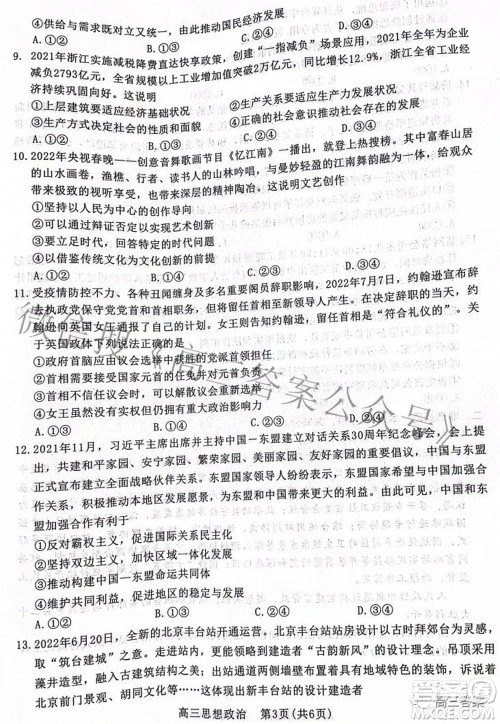 ④供给与需求既对立又统一，由此推动国民经济发展
A.①② B.①③ C.②④ D.③④
9. 2021年浙江实施减税降费直达快享政策，创建“一指减负”场景应用，2021年全年为企业
减负2793亿元，全省规模以上工业增加值突破2万亿元，同比增长12.9%，浙江全省工业经
济持续巩固向好。这说明
①上层建筑要适应经济基础状况 ②生产关系要适应生产力发展状况
③生产方式决定社会的性质和面貌 ④正确的社会意识推动社会的发展
A.①② B.①④ C.②③ D.③④
10. 2022年央视春晚——创意音舞歌画节目《忆江南》一播出，就悬了搜索榜。其中富春山居
的山水画卷，渔樵、行者、读书人的山林吟唱，与曼妙轻盈的江南舞韵融为一体，给观众
带来极致的视听享受，也带来了深层的精神陶冶。这说明文艺创作
①坚持以人民为中心的创作导向
②可以通过辩证否定以实现艺术创新
③要立足时代，回答特定的时代问题
④以借鉴传统文化为文化创新的前提
A.①② B.①③ C.②④ D.③④
11. 受疫情防控不力、各种丑闻缠身及多名重要内阁官员辞职影响，2022年7月7日，约翰逊宣布辞
去执政党保守党党首和首相职务，但表示在党首和首相新领导人产生前，会继续履行首相职责。约
翰逊向英国女王伊丽莎白二世通报了其辞职的决定，女王则告知约翰逊，首相是“符合礼仪的”。关
于英国政体下列说法正确的是
①政府首脑应由议会选举中获胜的政党首领担任
②首相要接受国家元首的任免并对其负责
③首相不信任议会时，可以解散议会重新选举
④女王虽然没有实权但仍发挥着重大作用
A.①③ B.①④ C.②③ D.②④
12. 2021年11月，习近平主席出席并主持中国－东盟建立对话关系30周年纪念峰会，会上提
出，共建和平家园、安宁家园、繁荣家园、美丽家园、友好家园，中国和东盟国家领导人
正式宣布建立全面战略伙伴关系。东盟国家领导人纷纷表示，中国是东盟最重要和强劲合
作关系，不断打造本地区伙伴关系典范，为中国和东盟带来更大的利益。由此可见，中国和东
盟加强合作有利于
①反对霸权主义，促进国际关系民主化
②坚持双边主义，加快区域一体化发展
③推动构建中国－东盟命运共同体
④维护共同利益，促进地区的稳定与发展
A.①② B.①③ C.②④ D.③④
13. 2022年6月20日，全新的北京丰台站开通运营。北京丰台站站房设计以古时拜郊台为灵感，
取“筑台建城”之意。走进车站，更能领略到无处不在的“古韵新风”的设计美学，吊顶的
藻井造型，融入古建筑结构之美；出站通道内设置有展现丰台站历史变迁的艺术墙，以及
北京前门景观、胡同文化等……这体现出新丰台站的设计建造者
高三思想政治 第3页(共6页)